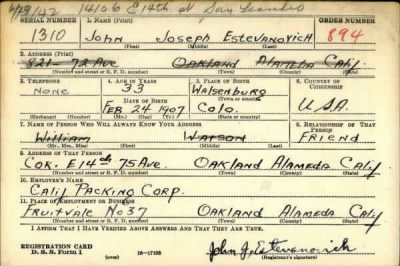 4/23/42 14106 E 14th St San Leandro
SERIAL NUMBER 1. NAME (Print) ORDER NUMBER
1310 John Joseph Estevanovich 894
(First) (Middle) (Last)
2. ADDRESS (Print)
821- 72 Ave Oakland Alameda Calif.
(Number and street or R. F. D. number) (Town) (County) (State)
3. TELEPHONE 4. AGE IN YEARS 5. PLACE OF BIRTH 6. COUNTRY OF CITIZENSHIP
None 33 Walsenburg
DATE OF BIRTH (Town or county)
Feb 24 1907 Colo. U.S.A.
(Exchange) (Number) (Mo.) (Day) (Yr.) (State or country)
7. NAME OF PERSON WHO WILL ALWAYS KNOW YOUR ADDRESS 8. RELATIONSHIP OF THAT PERSON
William Watson Friend
(Mr., Mrs., Miss) (First) (Middle) (Last)
9. ADDRESS OF THAT PERSON
Cor. E 14th 75 Ave. Oakland Alameda Calif
(Number and street or R. F. D. number) (Town) (County) (State)
10. EMPLOYER'S NAME
Calif Packing Corp.
11. PLACE OF EMPLOYMENT OR BUSINESS
Fruitvale No 37 Oakland Alameda Calif
(Number and street or R. F. D. number) (Town) (County) (State)
I AFFIRM THAT I HAVE VERIFIED ABOVE ANSWERS AND THAT THEY ARE TRUE.
REGISTRATION CARD
D. S. S. Form 1 (over) 16-17105 John J. Estevanovich
(Registrant's signature)